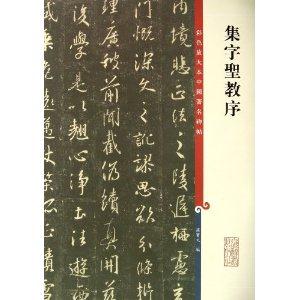 集字聖教序
彩色放大本中國著名碑帖
孫寶文 編
内境悲正法之陵遲栖慮玄
慨深文之訛謬思欲分條
理廣彼前聞截偽續真
後學是以翹心淨土法遊西